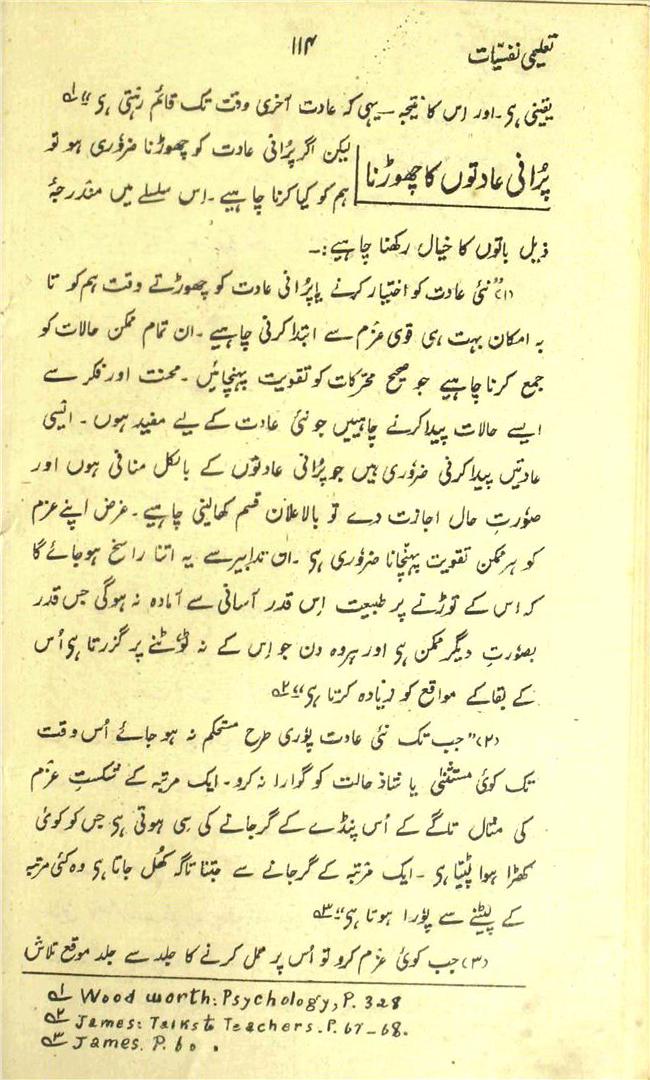 تعلیمی نفسیّات
۱۱۴
یقینی ہی۔ اور اس کا نتیجہ ــ یہی کہ عادت آخری وقت تک قائم رہتی ہی"؎۱
پُرانی عادتوں کا چھوڑنا
لیکن اگر پُرانی عادت کو چھوڑنا ضرؤری ہو تو
ہم کو کیا کرنا چاہیے۔ اِس سلسلے میں مندرجۂ
ذیل باتوں کا خیال رکھنا چاہیے:۔
(۱) "نئی عادت کو اختیار کرنے یا پُرانی عادت کو چھوڑتے وقت ہم کو تا
بہ امکان بہت ہی قوی عزم سے ابتدا کرنی چاہیے۔ ان تمام ممکن حالات کو
جمع کرنا چاہیے جو صحیح محرّکات کو تقویت پہنچائیں۔ محنت اور فکر سے
ایسے حالات پیدا کرنے چاہییں جو نئی عادت کے لیے مفید ہوں۔ ایسی
عادتیں پیدا کرنی ضرؤری ہیں جو پُرانی عادتوں کے بالکل منافی ہوں اور
صؤرتِ حال اجازت دے تو بالاعلان قسم کھالینی چاہیے۔ غرض اپنے عزم
کو ہر ممکن تقویت پہنچانا ضرؤری ہی۔ ان تدابیر سے یہ اتنا راسخ ہوجائے گا
کہ اس کے توڑنے پر طبیعت اِس قدر آسانی سے آمادہ نہ ہوگی جس قدر
بصؤرتِ دیگر ممکن ہی اور ہر وہ دن جو اِس کے نہ ٹؤٹنے پر گزرتا ہی اُس
کے بقا کے مواقع کو زیادہ کرتا ہی"؎۲
(۲) "جب تک نئی عادت پؤری طرح مستحکم نہ ہوجائے اُس وقت
تک کوئی مستثنیٰ یا شاذ حالت کو گوارا نہ کرو۔ ایک مرتبہ کے شکستِ عزم
کی مثال تاگے کے اُس پنڈے کے گرجانے کی سی ہوتی ہی جس کو کوئی
کھڑا ہوا لپٹتا ہی۔ ایک مرتبہ کے گرجانے سے جتنا تاگہ کھُل جاتا ہی وہ کئی مرتبہ
کے لپیٹنے سے پؤرا ہوتا ہی"؎۳
(۳) جب کوئی عزم کرو تو اُس پر عمل کرنے کا جلد سے جلد موقع تلاش
؎۱ Wood worth: Psychology, P. 328
؎۲ James: Talks to Teachers. P. 67-68.
؎۳ James. P. 60.